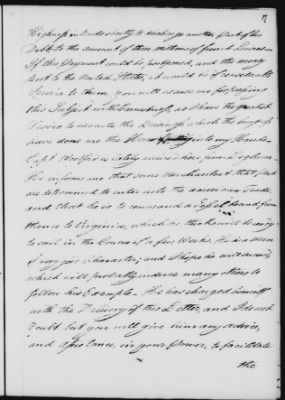 7
Highness in Amsterdam to discharge another Part of the
Debt to the amount of three millions of french Livres —
If this Payment could be postponed, and the money
lent to the United States, it would be of considerable
Service to them, you will excuse me for proposing
this Subject in the as I have the greatest
Desire to execute the Business which the Congress
have done me the Honor to my Hands
Capt. is lately arrived here from
He informs me that some merchants at that
are determined to enter into the american Trade,
and that he is to command a Ship from
thence to Virginia, which he thinks will be ready
to sail in the Course of a few Weeks. He is a man
of very good Character; and Ships
which will probably induce many others to
follow his Example. He has charged himself
with the Delivery of this Letter, and I do not
doubt but you will give him any advice,
and assistance, in your Power, to facilitate
the